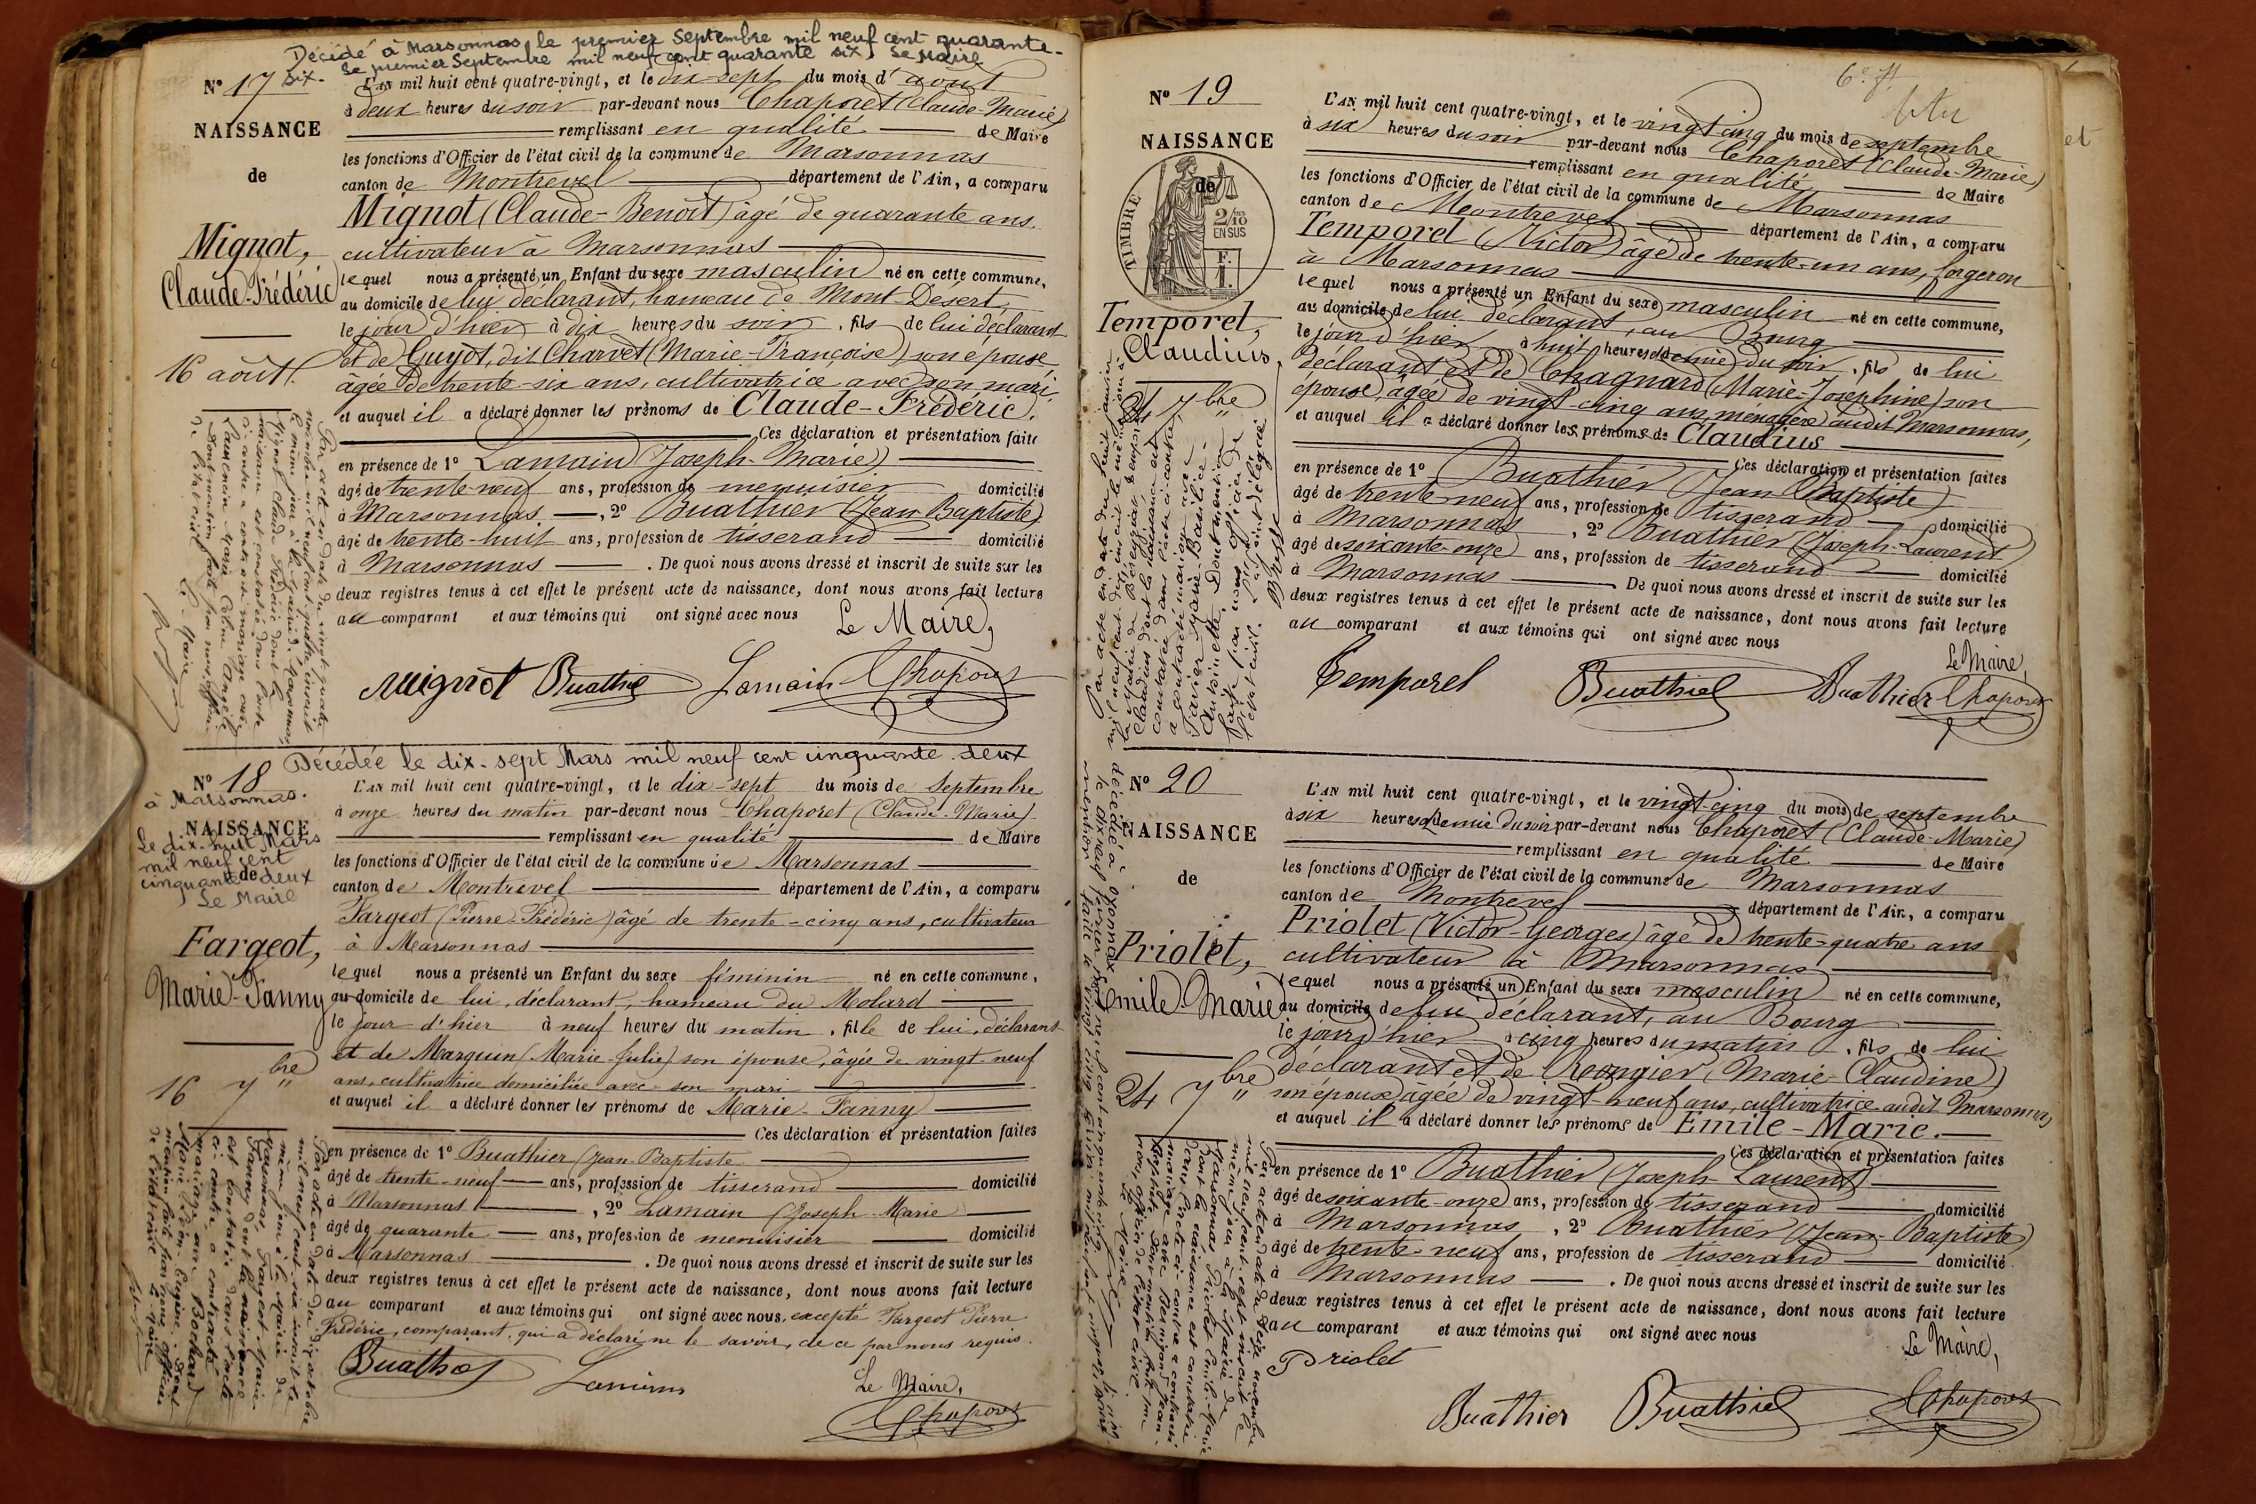 Décédé à Marsonnas, le premier Septembre mil neuf cent quarante-
Le premier Septembre mil neuf cent quarante six, Le Maire
six.-
N° 17
NAISSANCE
de
Mignot,
Claude-Frédéric
16 août.
L'AN mil huit cent quatre-vingt, et le dix-sept du mois d'août
à deux heures du soir par-devant nous Chaporet (Claude-Marie)
remplissant en qualité de Maire
les fonctions d'Officier de l'état civil de la commune de Marsonnas
canton de Montrevel département de l'Ain, a comparu
Mignot (Claude-Benoît) âgé de quarante ans,
cultivateur à Marsonnas
lequel nous a présenté un Enfant du sexe masculin né en cette commune,
au domicile de lui déclarant, hameau de Mont-Désert,
le jour d'hier à dix heures du soir, fils de lui déclarant
et de Guyot, dit Charvet (Marie-Françoise) son épouse,
âgée de trente-six ans, cultivatrice avec son mari,
et auquel il a déclaré donner les prénoms de Claude-Frédéric.
Ces déclaration et présentation faites
en présence de 1° Lamain (Joseph-Marie)
âgé de trente-neuf ans, profession de menuisier domicilié
à Marsonnas, 2° Buathier (Jean Baptiste)
âgé de trente-huit ans, profession de tisserand domicilié
à Marsonnas. De quoi nous avons dressé et inscrit de suite sur les
deux registres tenus à cet effet le présent acte de naissance, dont nous avons fait lecture
au comparant et aux témoins qui ont signé avec nous
Le Maire,
Mignot Buathier Lamain Chaporet
Par acte en date du vingt quatre
novembre mil neuf cent quatre, inscrit
le même jour à la Mairie de Marsonnas,
Mignot Claude Frédéric dont la
naissance est constatée dans l'acte
ci-contre a contracté mariage avec
Marie Céline Angèle
Dont mention faite par nous officier
de l'état civil
Le Maire
Décédée le dix-sept Mars mil neuf cent cinquante deux
à Marsonnas.
Le dix-huit Mars
mil neuf cent
cinquante deux
Le Maire
N° 18
NAISSANCE
de
Fargeot,
Marie-Fanny
16 7bre "
L'AN mil huit cent quatre-vingt, et le dix-sept du mois de Septembre
à onze heures du matin par-devant nous Chaporet (Claude-Marie)
remplissant en qualité de Maire
les fonctions d'Officier de l'état civil de la commune de Marsonnas
canton de Montrevel département de l'Ain, a comparu
Fargeot (Pierre-Frédéric) âgé de trente-cinq ans, cultivateur
à Marsonnas
lequel nous a présenté un Enfant du sexe féminin né en cette commune,
au domicile de lui, déclarant, hameau du Molard
le jour d'hier à neuf heures du matin, fille de lui, déclarant
et de Marguin (Marie-Julie) son épouse, âgée de vingt-neuf
ans, cultivatrice domiciliée avec son mari
et auquel il a déclaré donner les prénoms de Marie-Fanny
Ces déclaration et présentation faites
en présence de 1° Buathier (Jean-Baptiste
âgé de trente-neuf ans, profession de tisserand domicilié
à Marsonnas, 2° Lamain (Joseph-Marie
âgé de quarante ans, profession de menuisier domicilié
à Marsonnas. De quoi nous avons dressé et inscrit de suite sur les
deux registres tenus à cet effet le présent acte de naissance, dont nous avons fait lecture
au comparant et aux témoins qui ont signé avec nous, excepté Fargeot Pierre
Frédéric, comparant, qui a déclaré ne le savoir, de ce par nous requis.
Buathier Lamain
Le Maire,
Chaporet
Par acte en date du dix octobre
mil neuf cent six inscrit le
même jour à la Mairie de
Marsonnas, Fargeot Marie-
Fanny dont la naissance
est constatée dans l'acte
ci-contre a contracté
mariage avec Bochard
mention faite par nous officier
de l'état civil
Le Maire
N° 19
NAISSANCE
de
TIMBRE
2/10
EN SUS
Temporel,
Claudius,
24 7bre "
L'AN mil huit cent quatre-vingt, et le vingt-cinq du mois de septembre
à six heures du soir par-devant nous Chaporet (Claude-Marie)
remplissant en qualité de Maire
les fonctions d'Officier de l'état civil de la commune de Marsonnas
canton de Montrevel département de l'Ain, a comparu
Temporel (Victor) âgé de trente-un ans, forgeron
à Marsonnas
lequel nous a présenté un Enfant du sexe masculin né en cette commune,
au domicile de lui déclarant, au Bourg
le jour d'hier à huit heures et demie du soir, fils de lui
déclarant et de Chagnard (Marie-Joséphine) son
épouse, âgée de vingt-cinq ans, ménagère audit Marsonnas,
et auquel il a déclaré donner les prénoms de Claudius
Ces déclaration et présentation faites
en présence de 1° Buathier (Jean Baptiste)
âgé de trente-neuf ans, profession de tisserand domicilié
à Marsonnas, 2° Buathier (Joseph-Laurent
âgé de soixante-onze ans, profession de tisserand domicilié
à Marsonnas De quoi nous avons dressé et inscrit de suite sur les
deux registres tenus à cet effet le présent acte de naissance, dont nous avons fait lecture
au comparant et aux témoins qui ont signé avec nous
Le Maire,
Temporel Buathier Buathier Chaporet
Par acte en date du
la Mairie de
Claudius dont la naissance est
constatée dans l'acte ci-contre,
a contracté mariage avec
Tavier Marie-Basilice-
Antoinette. Dont mention
faite par nous officier de
l'état civil.
N° 20
NAISSANCE
de
Priolet,
Emile-Marie
24 7bre "
L'AN mil huit cent quatre-vingt, et le vingt-cinq du mois de septembre
à six heures et demie du soir par-devant nous Chaporet (Claude-Marie)
remplissant en qualité de Maire
les fonctions d'Officier de l'état civil de la commune de Marsonnas
canton de Montrevel département de l'Ain, a comparu
Priolet (Victor-Georges) âgé de trente-quatre ans
cultivateur à Marsonnas
lequel nous a présenté un Enfant du sexe masculin né en cette commune,
au domicile de lui déclarant, au Bourg
le jour d'hier à cinq heures du matin, fils de lui
déclarant et de Rongier (Marie-Claudine)
son épouse âgée de vingt-neuf ans, cultivatrice audit Marsonnas,
et auquel il a déclaré donner les prénoms de Emile-Marie.
Ces déclaration et présentation faites
en présence de 1° Buathier (Joseph-Laurent)
âgé de soixante-onze ans, profession de tisserand domicilié
à Marsonnas, 2° Buathier (Jean-Baptiste)
âgé de trente-neuf ans, profession de tisserand domicilié
à Marsonnas. De quoi nous avons dressé et inscrit de suite sur les
deux registres tenus à cet effet le présent acte de naissance, dont nous avons fait lecture
au comparant et aux témoins qui ont signé avec nous
Le Maire,
Priolet
Buathier Buathier Chaporet
décédé à Oyonnax
le dix neuf février mil neuf cent cinquante cinq